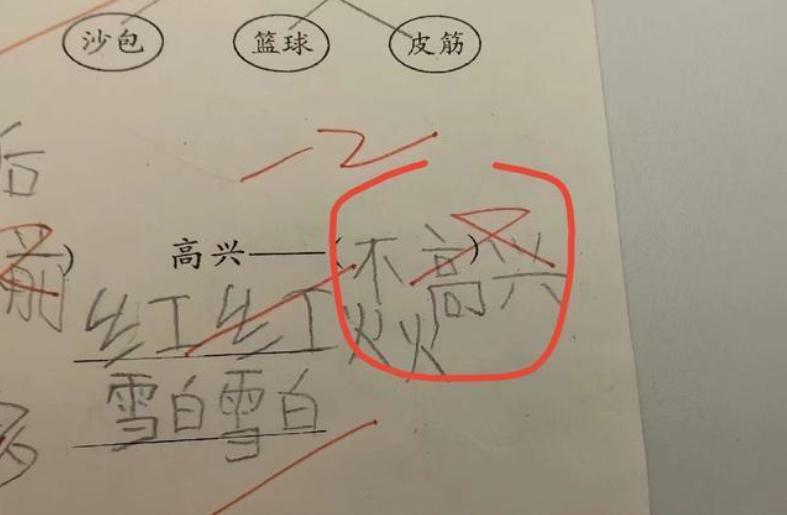 沙包 篮球 皮筋
后
-2
前)
高兴——(不高兴)
红工红工火火
雪白雪白